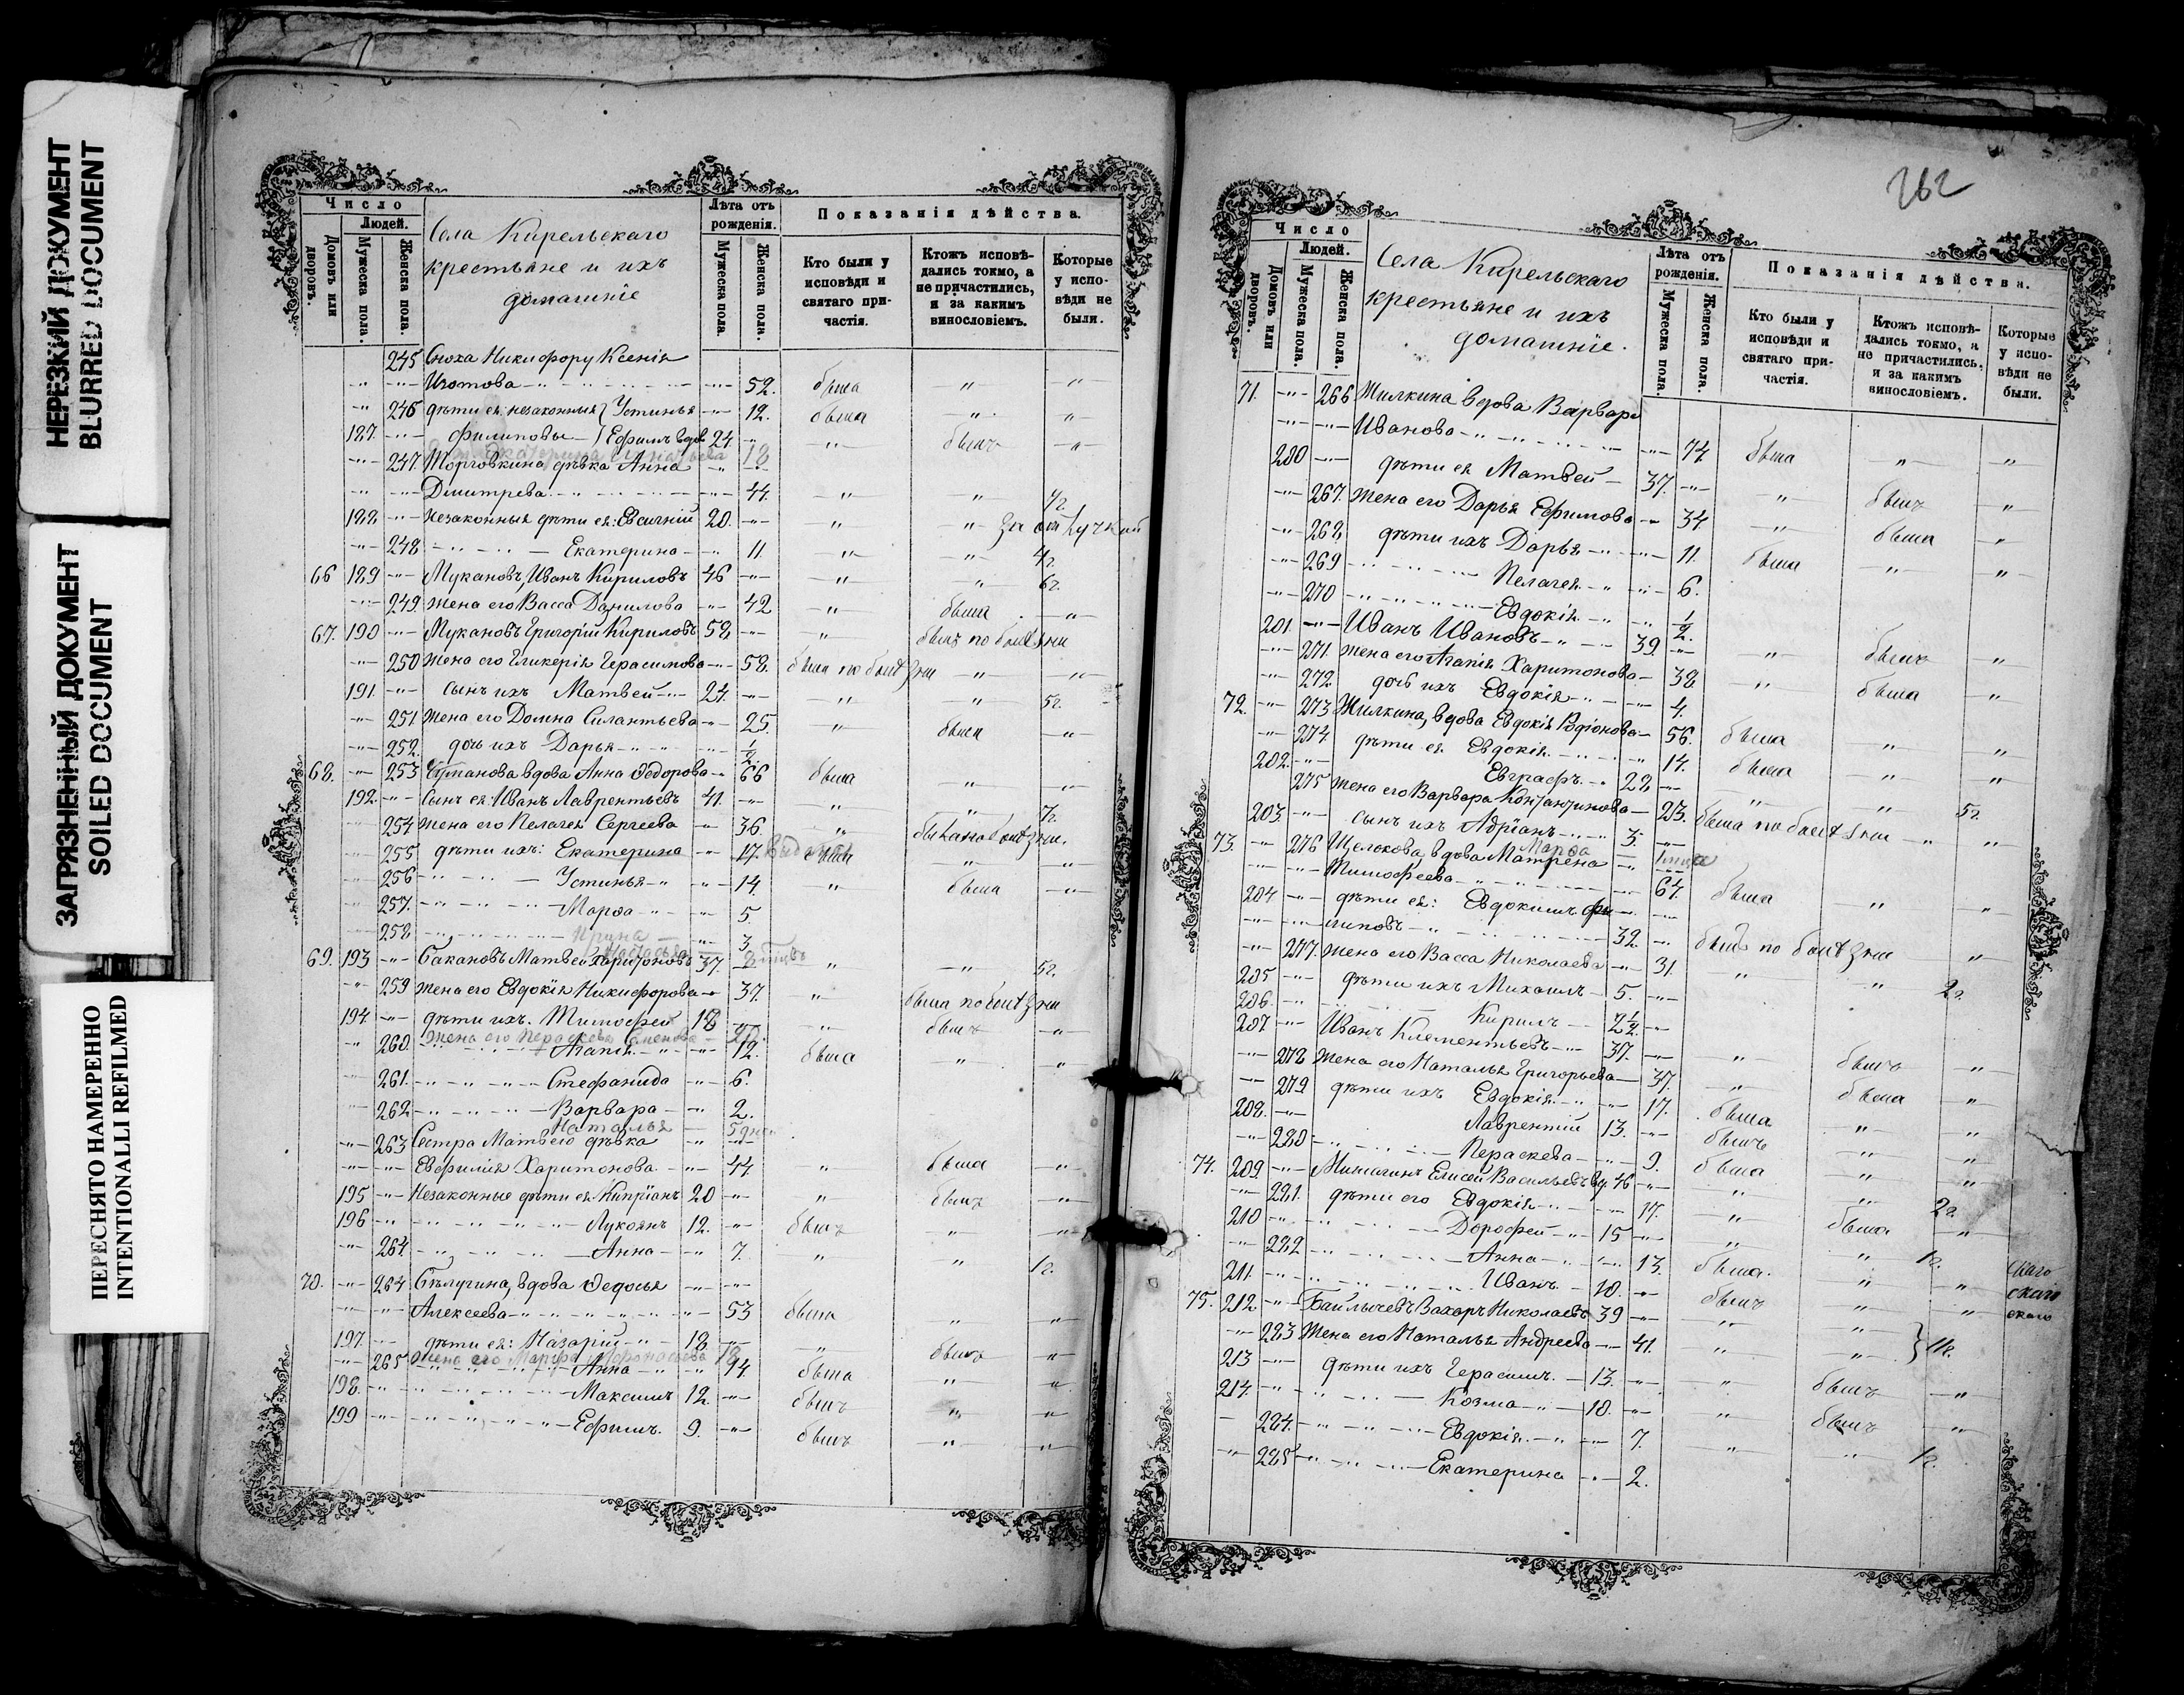 НЕРЕЗКИЙ ДОКУМЕНТ
BLURRED DOCUMENT
ЗАГРЯЗНЕННЫЙ ДОКУМЕНТ
SOILED DOCUMENT
ПЕРЕСНЯТО НАМЕРЕННО
INTENTIONALLI REFILMED
Число
Людей.
Домовъ или дворовъ.
Мужеска пола.
Женска пола.
Села Кирельскаго
крестьяне и ихъ
домашніе
Лѣта отъ рожденія.
Мужеска пола.
Женска пола.
Показанія дѣйства.
Кто были у исповѣди и святаго причастія.
Ктожъ исповѣдались токмо, а не причастились, и за какимъ винословіемъ.
Которые у исповѣди не были.
245 Сноха Никифору Ксенія
-"- -"- Изотова -"- 52. была " "
-"- 246 дѣти ея незаконныя Устинья -"- 12. была " "
187. -"- Филиповы Ефимъ вдов 24 -"- былъ "
18
-"- 247. Торговкина дѣвка Анна -"-
-"- -"- Дмитрева -"- 44. " " 4г.
188 -"- Незаконныя дѣти ея: Евсигній 20. -"- " " за отлучкой
-"- 248 -"- Екатерина -"- 11 " " 4г.
66 189 -"- Мукановъ, Иванъ Кириловъ 46 -"- " " 6г.
-"- 249. жена его Васса Данилова -"- 42 " была "
67. 190 -"- Мукановъ Григорій Кириловъ 58 -"- " былъ по болѣзни
-"- 250 жена его Гликерія Герасимова -"- 58. была по болѣзни " "
191. -"- сынъ ихъ Матвей -"- 24. -"- " " 5г.
-"- 251 жена его Домна Силантьева -"- 25. " была "
-"- 252. дочь ихъ Дарья -"- 1/2
68. -"- 253 вдова Анна Ѳедорова -"- 66 была " "
192. -"- Сынъ ея Иванъ Лаврентьевъ 41. -"- " " 7г.
254 жена его Пелагея Сергеева -"- 36. "
255 дѣти ихъ: Екатерина -"- 17. " "
256 -"- Устинья -"- 14. " была "
257. -"- Марѳа -"- 5.
258 -"- Ирина -"- 3
69. 193 -"- Бакановъ Матвей Харитоновъ 37. " " 5г.
-"- 259 жена его Евдокія Никифорова -"- 37. " была по болѣзни
194 -"- дѣти ихъ. Тимофей 18 -"- " былъ "
жена его Пераскева Семенова
" 260. -"- Агапія -"- 12. была " "
261. -"- Стефанида -"- 6.
262 -"- Варвара -"- 2.
Наталья 5 дней
-"- 263 Сестра Матвея дѣвка " -"-
-"- -"- Евфимія Харитонова -"- 44 " была "
195 -"- Незаконные дѣти ея Кипріанъ 20 -"- " былъ "
196 -"- Лукоянъ 12. -"- былъ " "
-"- 264. -"- Анна -"- 7. " " 1г.
70. -"- 264 Бѣлугина, вдова Ѳедосья -"- -"-
-"- " Алексеева -"- 53 была " "
197. -"- дѣти ея: Назарій -"- 18. -"- " былъ "
жена его 18
-"- 265 -"- Анна -"- 14. была " "
198. -"- Максимъ 12. -"- былъ " "
199 -"- Ефимъ. 9. -"- былъ " "
262
Число
Людей.
Домовъ или дворовъ.
Мужеска пола.
Женска пола.
Села Кирельскаго
крестьяне и ихъ
домашніе.
Лѣта отъ рожденія.
Мужеска пола.
Женска пола.
Показанія дѣйства.
Кто были у исповѣди и святаго причастія.
Ктожъ исповѣдались токмо, а не причастились, и за какимъ винословіемъ.
Которые у исповѣди не были.
71. -"- 266 Жилкина вдова Варвара
-"- -"- Иванова -"- 74 была " "
200 -"- дѣти ея Матвей 37. -"- " былъ "
-"- 267. жена его Дарья Ефимова -"- 34 " была "
-"- 268 дѣти ихъ Дарья -"- 11. была " "
-"- 269 -"- Пелагея -"- 6.
-"- 270 -"- Евдокія -"- 1/2.
201. -"- Иванъ Ивановъ -"- 39. -"- " былъ "
-"- 271. жена его Агапія Харитонова 38 " была "
-"- 272. дочь ихъ Евдокія -"- 4.
72. -"- 273 Жилкина, вдова Евдокія Родіонова 56. была " "
-"- 274. дѣти ея Евдокія -"- 14. была " "
202. -"- Евграфъ. 28 -"- " " 5г.
275 жена его Варвара 23. была по болѣзни " "
203 -"- сынъ ихъ Адріанъ -"- 3. -"-
Марѳа
73. -"- 276 Щелокова, вдова Матрена
-"- -"- Тимофеева -"- 64. была " "
204 -"- дѣти ея: Евдокимъ Фи-
-"- -"- липовъ -"- 32. -"- былъ по болѣзни "
-"- 277. жена его Васса Николаева -"- 31. " " 2г.
205 -"- дѣти ихъ Михаилъ 5. -"-
206. -"- Кирилъ 2 1/2 -"-
207 -"- Иванъ Клементьевъ -"- 37. -"- " былъ "
-"- 278 жена его Наталья Григорьева 37. " была "
-"- 279 дѣти ихъ Евдокія -"- 17. была " "
208. -"- Лаврентій 13. -"- былъ " "
-"- 280 -"- Пераскева -"- 9. была " "
74. 209. -"- Елисей Васильевъ вд. 46 -"- " " 2г.
-"- 281. дѣти его Евдокія -"- 17. " была "
210 -"- Дорофей -"- 15 -"- " " 1г.
-"- 282 -"- Анна -"- 13. была. " "
211. -"- Иванъ. 10. -"- былъ " "
75. 212. -"- Захаръ Николаевъ 39 -"- " "
-"- 283 жена его Наталья Андреева -"- 41. " " } 1г.
213 -"- дѣти ихъ Герасимъ. 13. -"- " былъ "
214. -"- Козма -"- 10. -"- " былъ "
284. -"- Евдокія -"- 7. " " 1г.
-"- 285 -"- Екатерина -"- 2.
скаго
скаго